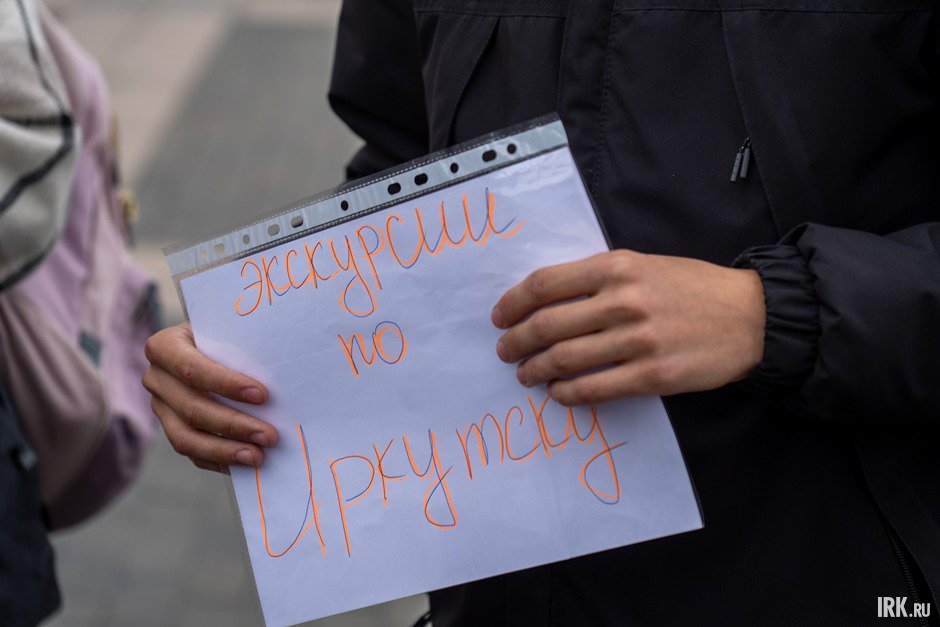 экскурсии
по
Иркутску
IRK.RU